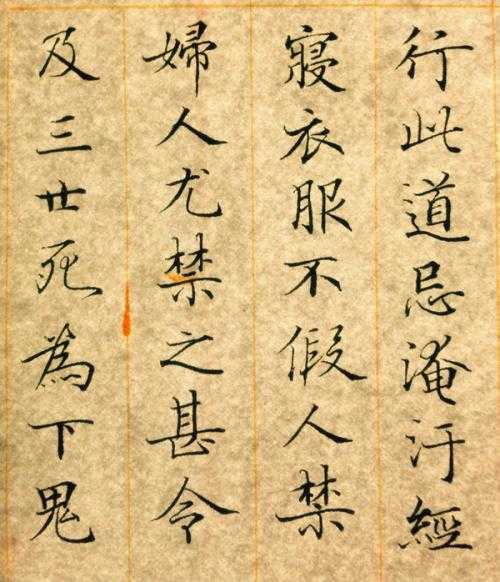 行此道忌淹汙經
寢衣服不假人禁
婦人尤禁之甚令
及三廿死為下鬼